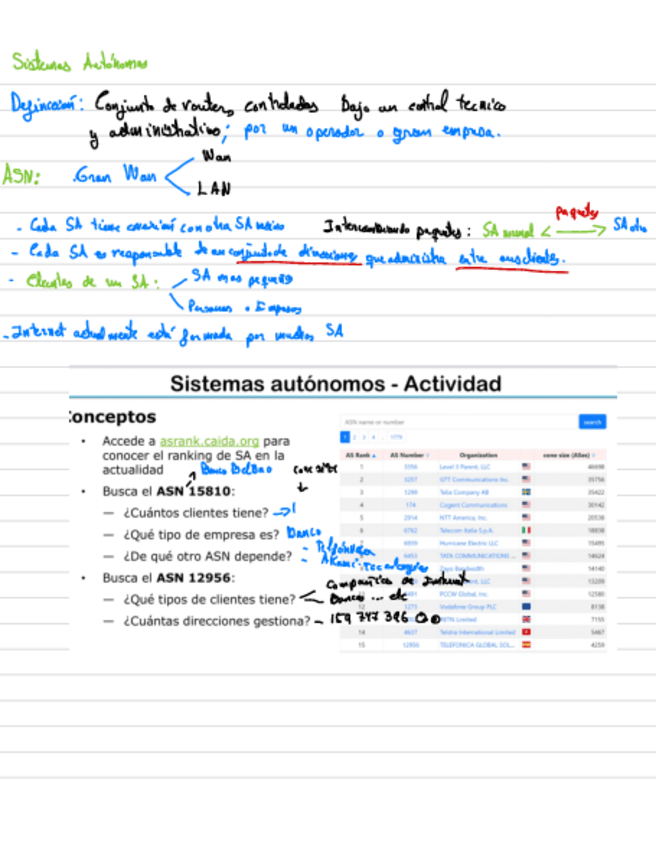 Sistemas Autónomos
Definición: Conjunto de routers controlados bajo un control tecnico
y administrativo; por un operador o gran empresa.
ASN: Gran Wan
Wan
LAN
- Cada SA tiene conexión con otra SA
Intercambiando paquetes: SA
paquetes
SA otro
- Cada SA es responsable de un conjunto de direcciones que administra entre sus clientes.
- Clientes de un SA:
SA mas pequeños
Personas o Empresas
- Internet actualmente está formada por muchos SA
Sistemas autónomos - Actividad
onceptos
• Accede a asrank.caida.org para
conocer el ranking de SA en la
actualidad
Banco Bilbao
cone size
• Busca el ASN 15810:
— ¿Cuántos clientes tiene? → 1
— ¿Qué tipo de empresa es? Banco
— ¿De qué otro ASN depende?
- Telefonica
- Akamai-Tecnologies
• Busca el ASN 12956:
— ¿Qué tipos de clientes tiene?
Compañias de Internet
Bancos ... etc
— ¿Cuántas direcciones gestiona? - 159 747 386
ASN name or number
search
1 2 3 4 .. 1779
AS Rank AS Number Organization cone size (ASes)
1 3356 Level 3 Parent, LLC 46698
2 3257 GTT Communications Inc. 35756
3 1299 Telia Company AB 35422
4 174 Cogent Communications 30142
5 2914 NTT America, Inc. 20538
6 6762 Telecom Italia S.p.A. 18838
7 6939 Hurricane Electric LLC 15495
6453 TATA COMMUNICATIONS ... 14624
Zayo Bandwidth 14140
LLC 13209
PCCW Global, Inc. 12580
12 1273 Vodafone Group PLC 8138
Limited 7155
14 4637 Telstra International Limited 5467
15 12956 TELEFONICA GLOBAL SOL... 4259